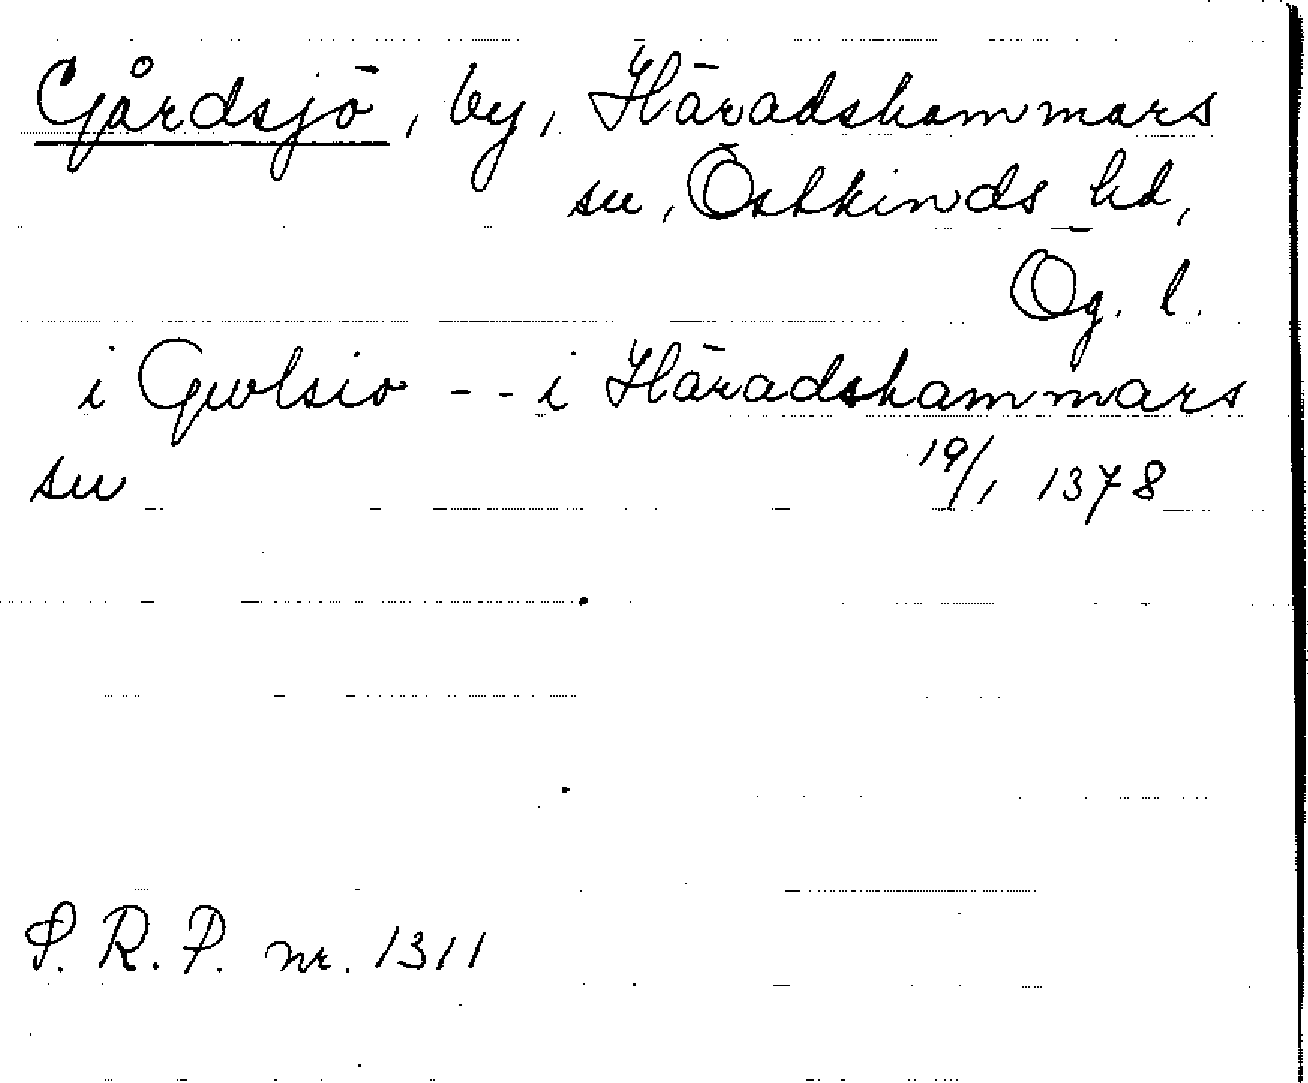 Gårdsjö, by, Häradshammars
sn, Östkinds hd,
Ög. l.
i Gwlsio -- i Häradshammars
sn 19/1 1378
S. R. P. nr. 1311